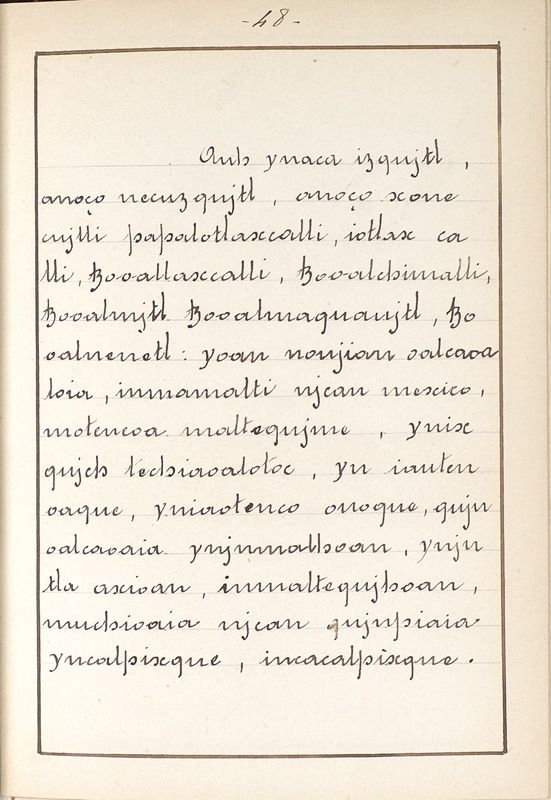 -48-
Auh ynaca izqujtl,
anoço necuzqujtl, anoço xone
cujlli papalotlaxcalli, iotlax ca
lli, tzooallaxcalli, tzooalchimalli,
tzooalmjtl tzooalmaquaujtl, tzo
oalnenetl: yoan noujian oalcaoa
loia, inmamalti njcan mexico,
motencoa maltequjme, ynix
qujch techiaoalotoc, yn iauten
oaque, yniaotenco onoque, qujn
oalcaoaia ynjnmalhoan, ynjn
tla axioan, inmaltequjhoan,
muchioaia njcan qujnpiaia
yncalpixque, incacalpixque.